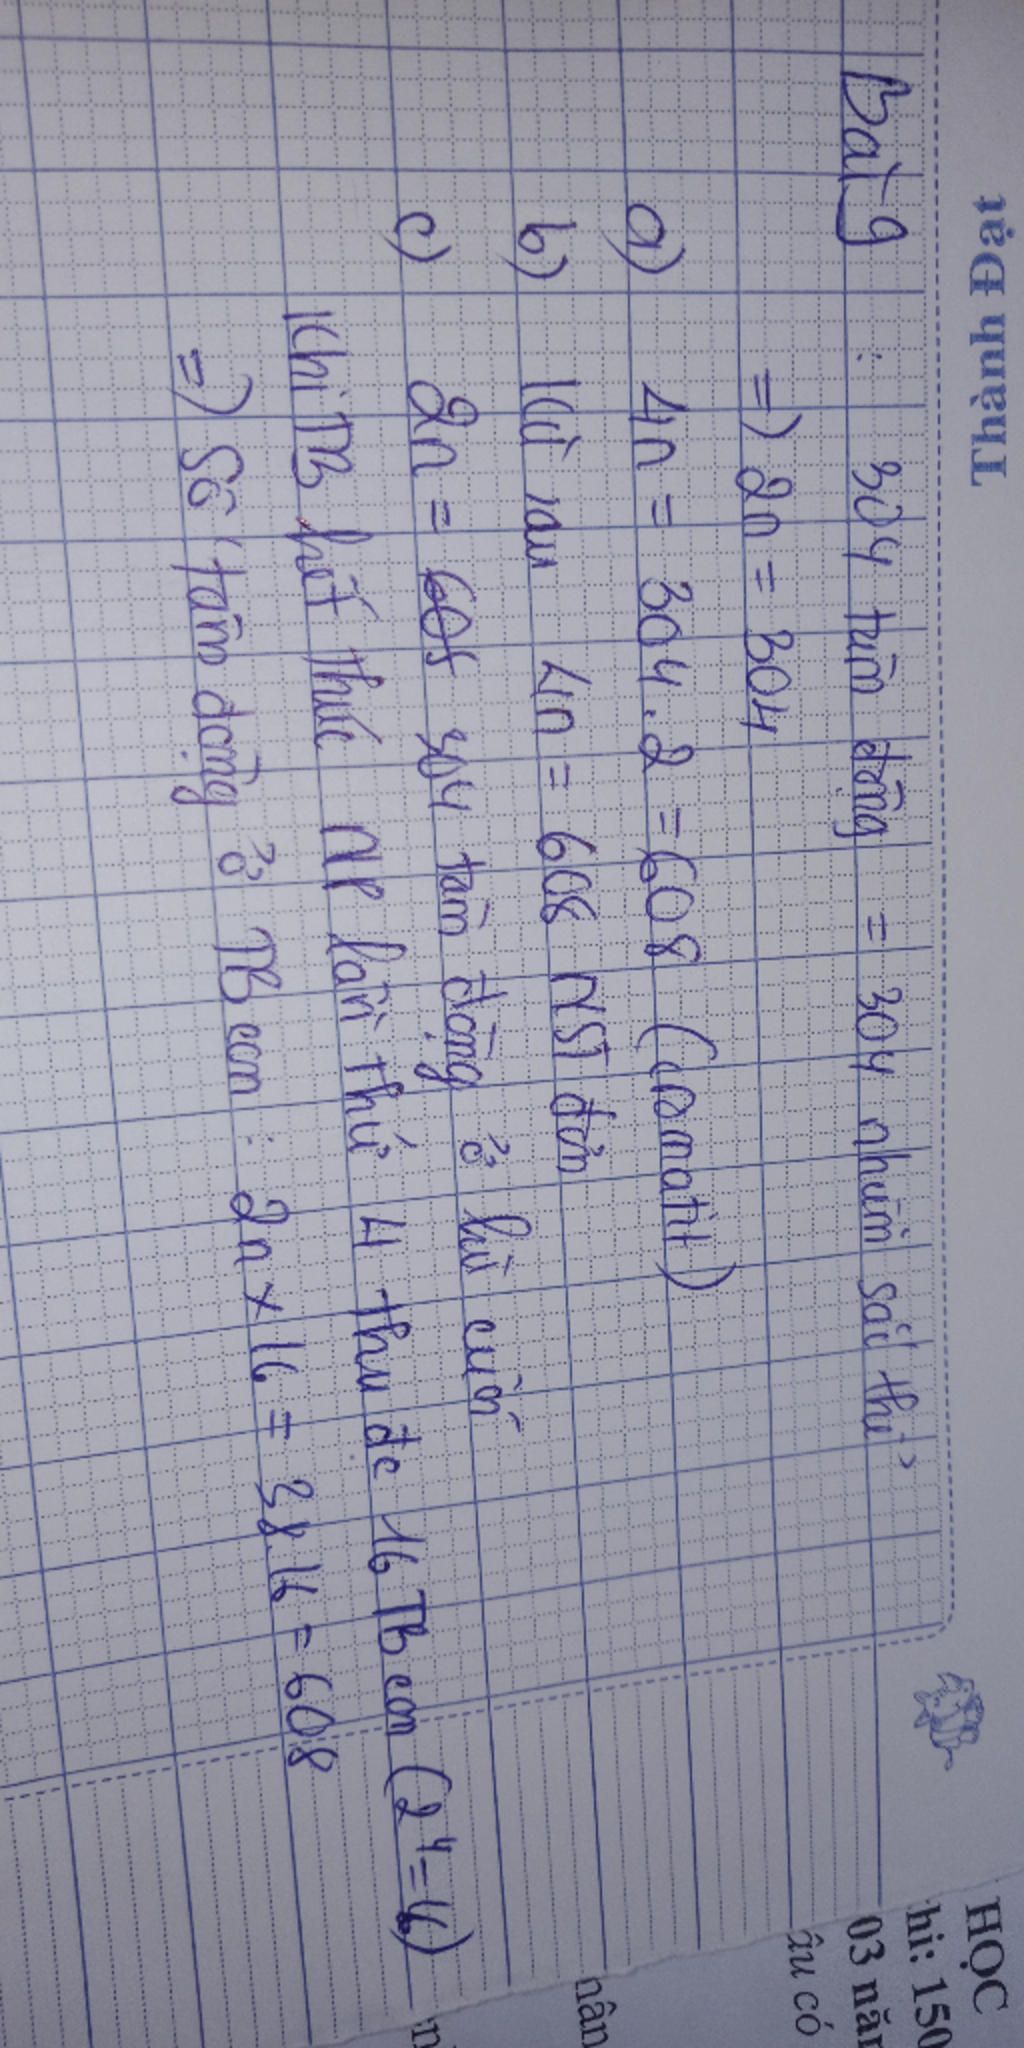 Thành Đạt
Bài 9 : 304 tâm động = 304 nhiễm sắc thể
=) 2n = 304
a) 4n = 304.2 = 608 (cromatit)
b) Kì sau 4n = 608 NST đơn
c) 2n = 304 tâm động ở kì cuối
Khi TB kết thúc NP lần thứ 4 thu đc 16 TB con (2⁴=16)
=) Số tâm động ở TB con : 2n x 16 = 38.16 = 608
HỌC
hi: 150
03 năn
âu có
nân